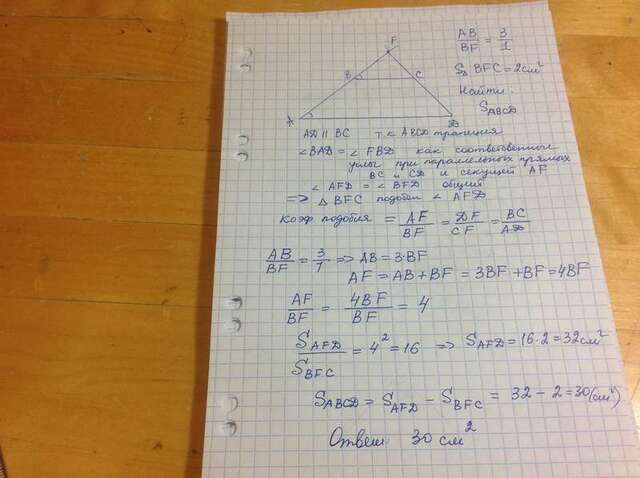 F
B
C
A
D
AB/BF = 3/1
S△ BFC = 2см²
Найти:
S ABCD
AD || BC т.к ABCD трапеция
∠BAD = ∠ FBD как соответственные
углы при параллельных прямых
BC и CD и секущей AF
∠ AFD = ∠ BFD общий
=> △ BFC подобен ∠ AFD
Коэф подобия = AF/BF = DF/CF = BC/AD
AB/BF = 3/1 => AB = 3·BF
AF = AB + BF = 3BF + BF = 4BF
AF/BF = 4BF/BF = 4
S AFD/S BFC = 4² = 16 => S AFD = 16·2 = 32см²
S ABCD = S AFD − S BFC = 32 − 2 = 30(см²)
Ответ 30 см²